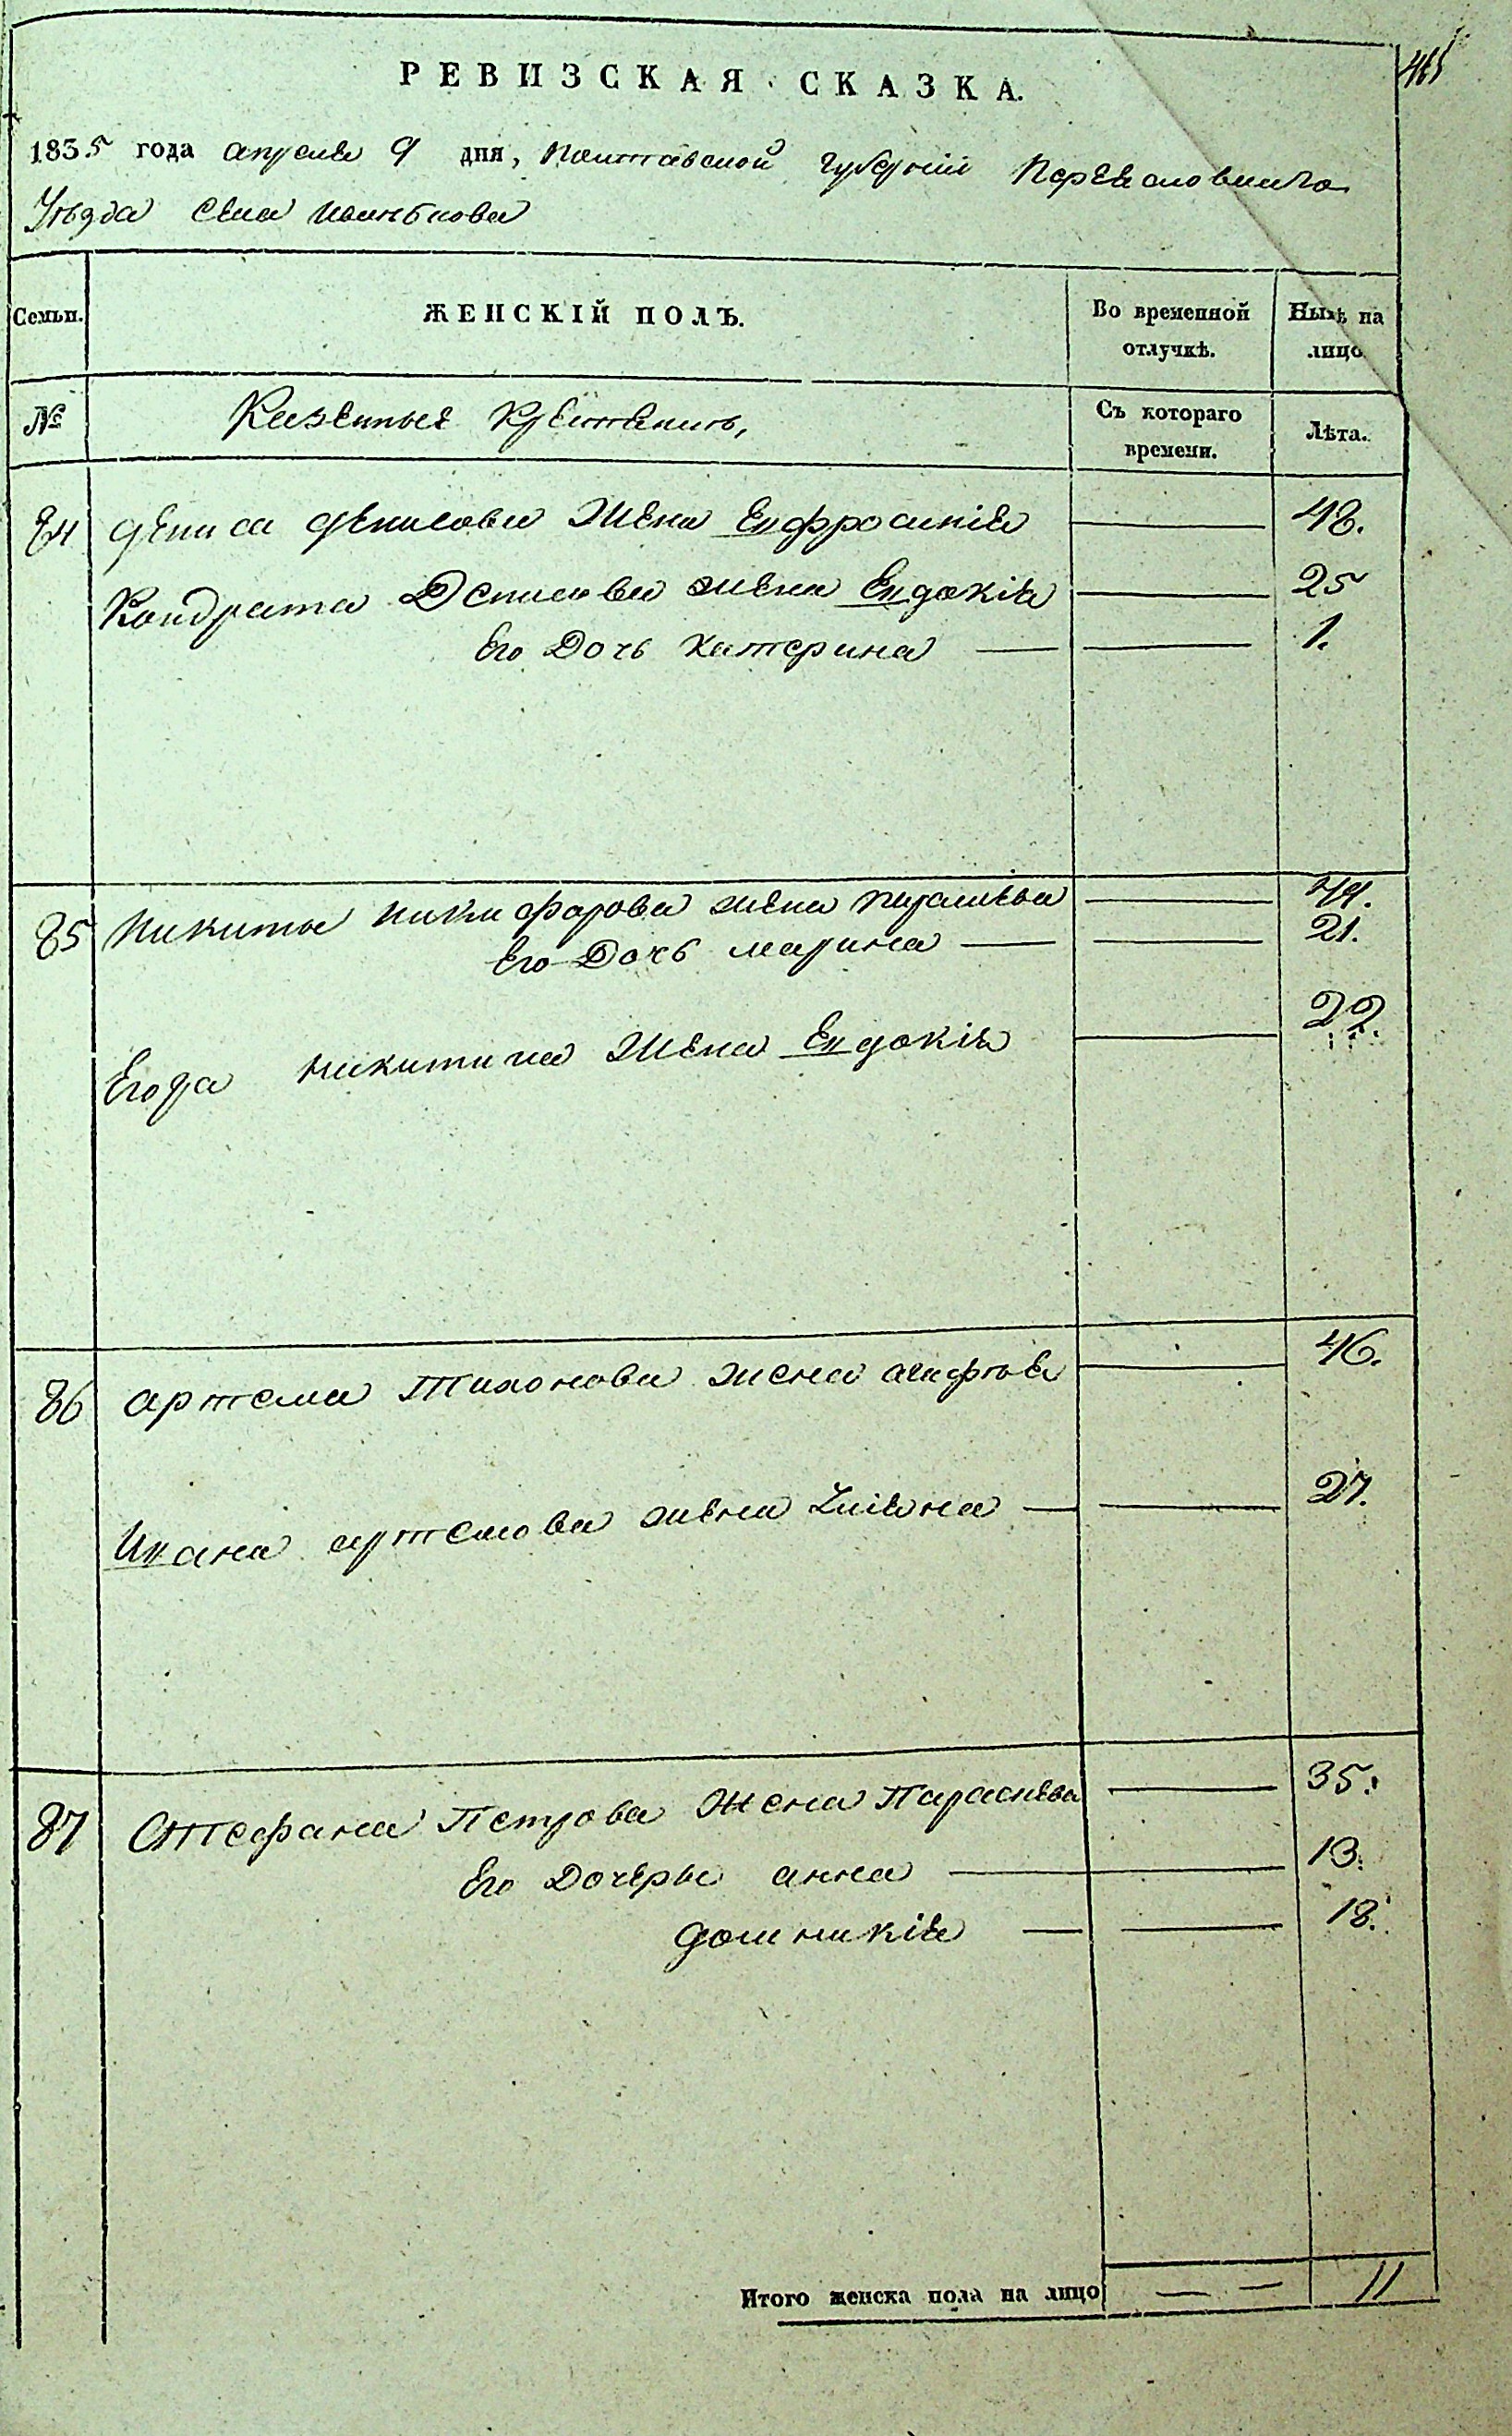 465
РЕВИЗСКАЯ СКАЗКА.
1835 года апреля 9 дня, Полтавской губернии Переясловского
Уезда села
Семьи. ЖЕНСКІЙ ПОЛЪ. Во временной отлучкѣ. Нынѣ на лицо
№ Казенные Крестянъ, Съ котораго времени. Лѣта.
84 Дениса Денисова Жена Евфросинія 48.
Кондрата Денисова жена Евдокія 25
Его Дочь Катерина 1.
85 Никиты Никифорова жена 49.
Его Дочь марина 21.
Егора Никитина Жена Евдокія 22.
86 артема Тихонова жена агафія 46.
Ивана артемова жена 27.
87 Стефана Петрова Жена Параскева 35.
Его Дочеры анна 13.
домникія 18.
Итого женска пола на лицо — — 11